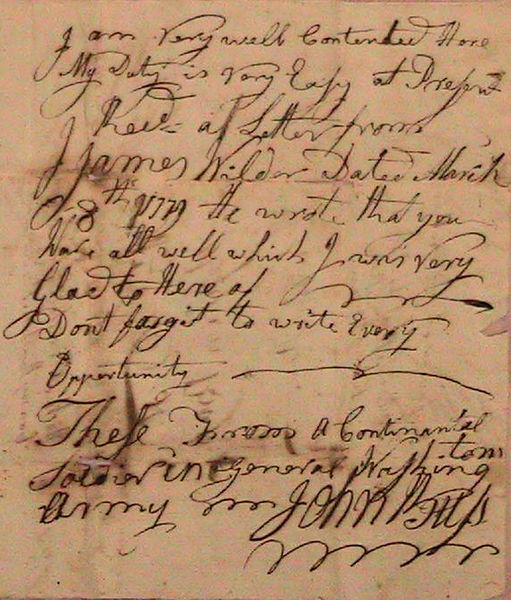 I am Very well Contented Here
My Duty is Very Easy at Present
I Recd a Letter from
James Wilder Dated March
28th 1779 He wrote that you
Ware all well which I was Very
Glad to Here of
Dont forget to write Every
Opportunity
These From a Continantal
Soldier in General Washing
tons
Army John